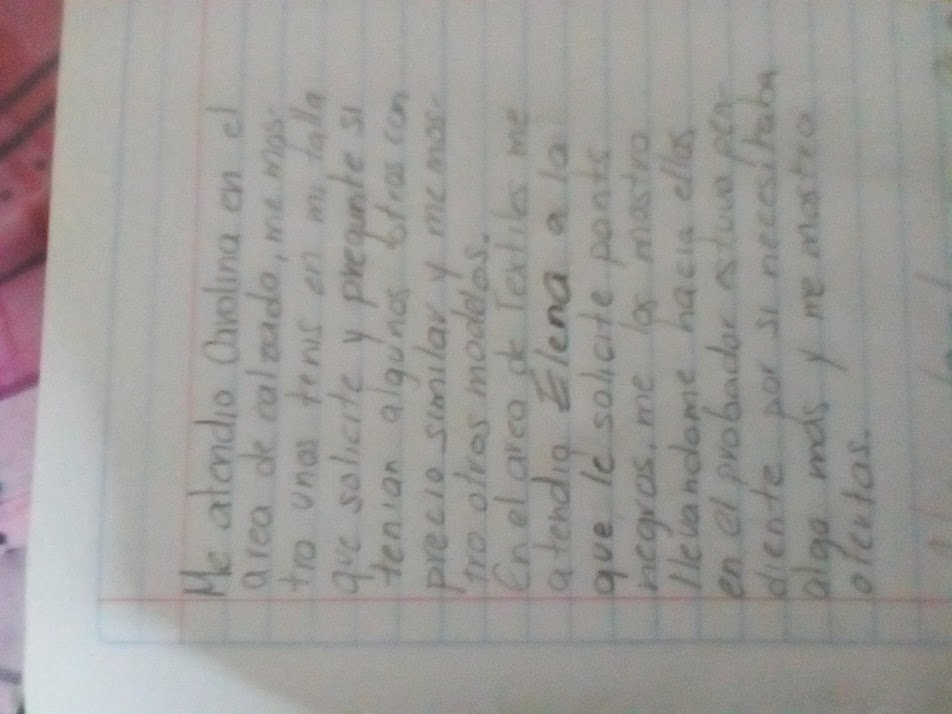 Me atendio Carolina en el
area de calzado, me mos-
tro unos tenis en mi talla
que solicite y pregunte si
tenian algunos otros con
precio similar y me mos-
tro otros modelos.
En el area de Textiles me
atendio Elena a la
que le solicite pants
negros, me los mostro
llevandome hacia ellos
en el probador estuvo pen-
diente por si necesitaba
algo más y me mostro
ofertas.